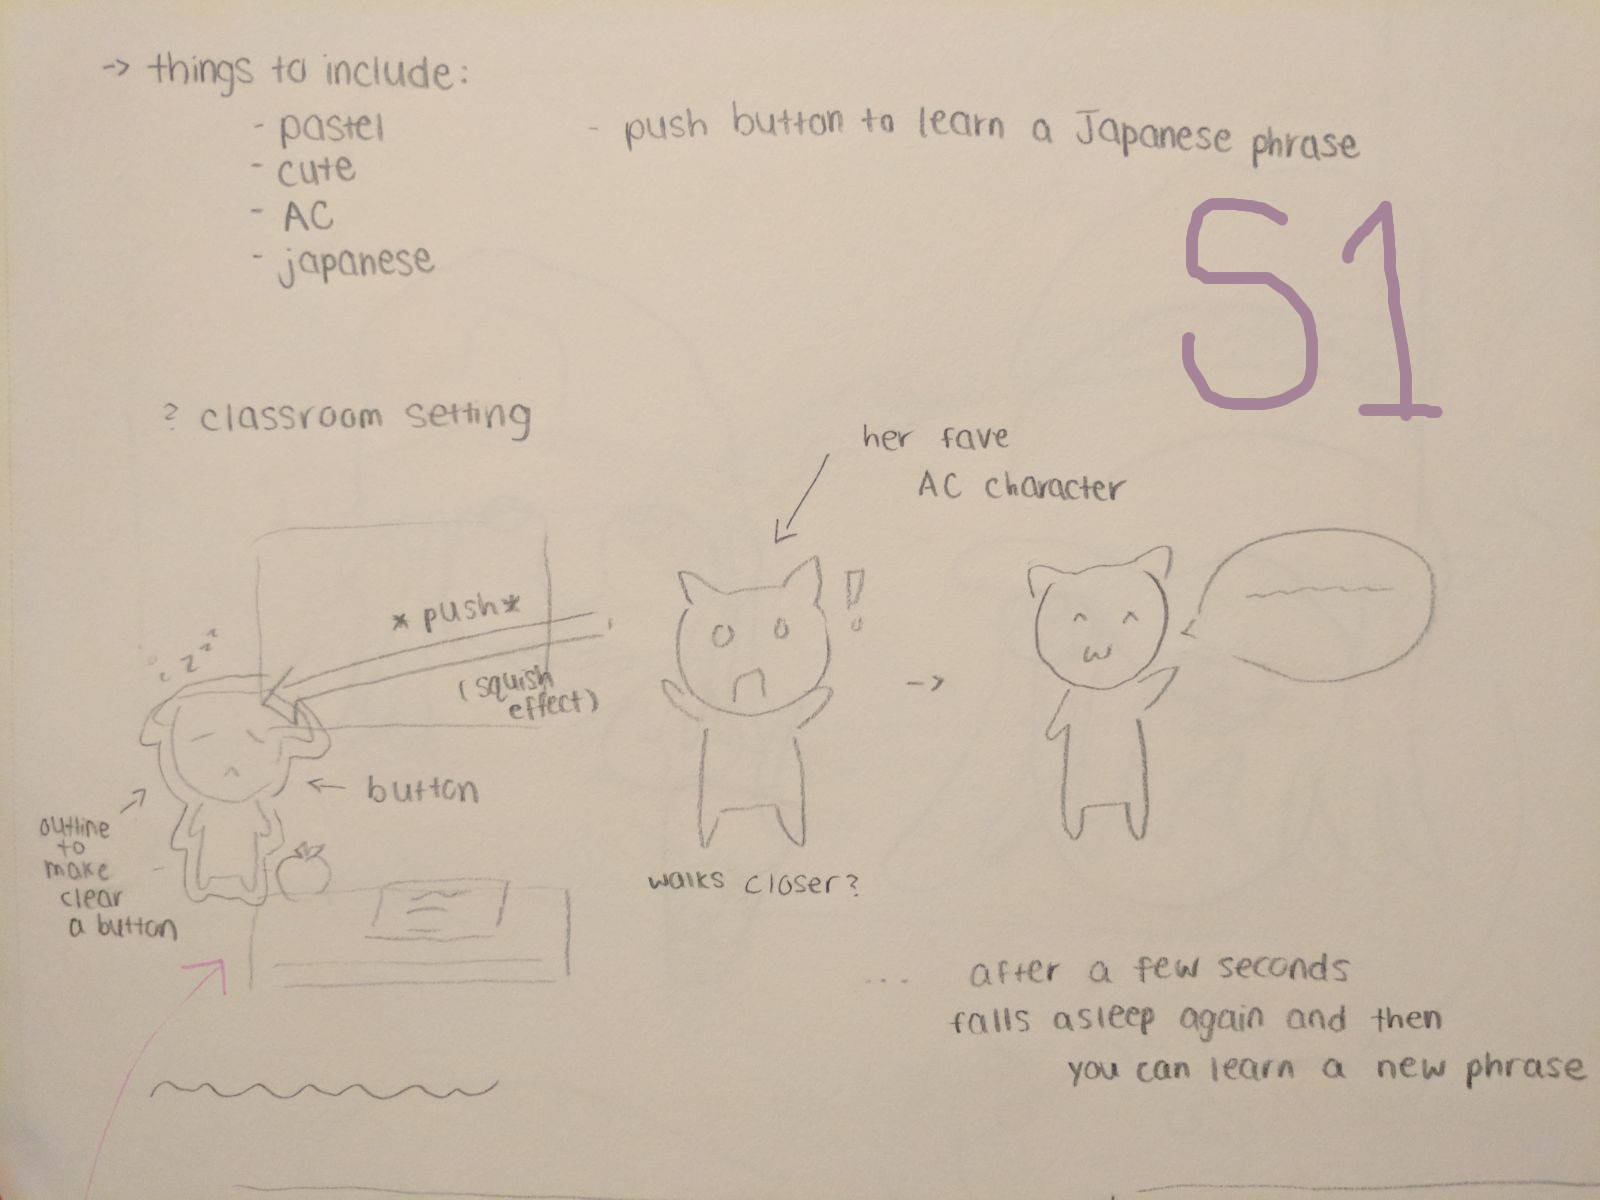 -> things to include:
- pastel
- cute
- AC
- japanese
- push button to learn a Japanese phrase
S1
? classroom setting
her fave
AC character
zzz
*push*
(squish
effect)
!
->
<- button
outline
to
make
clear
a button
walks closer?
... after a few seconds
falls asleep again and then
you can learn a new phrase